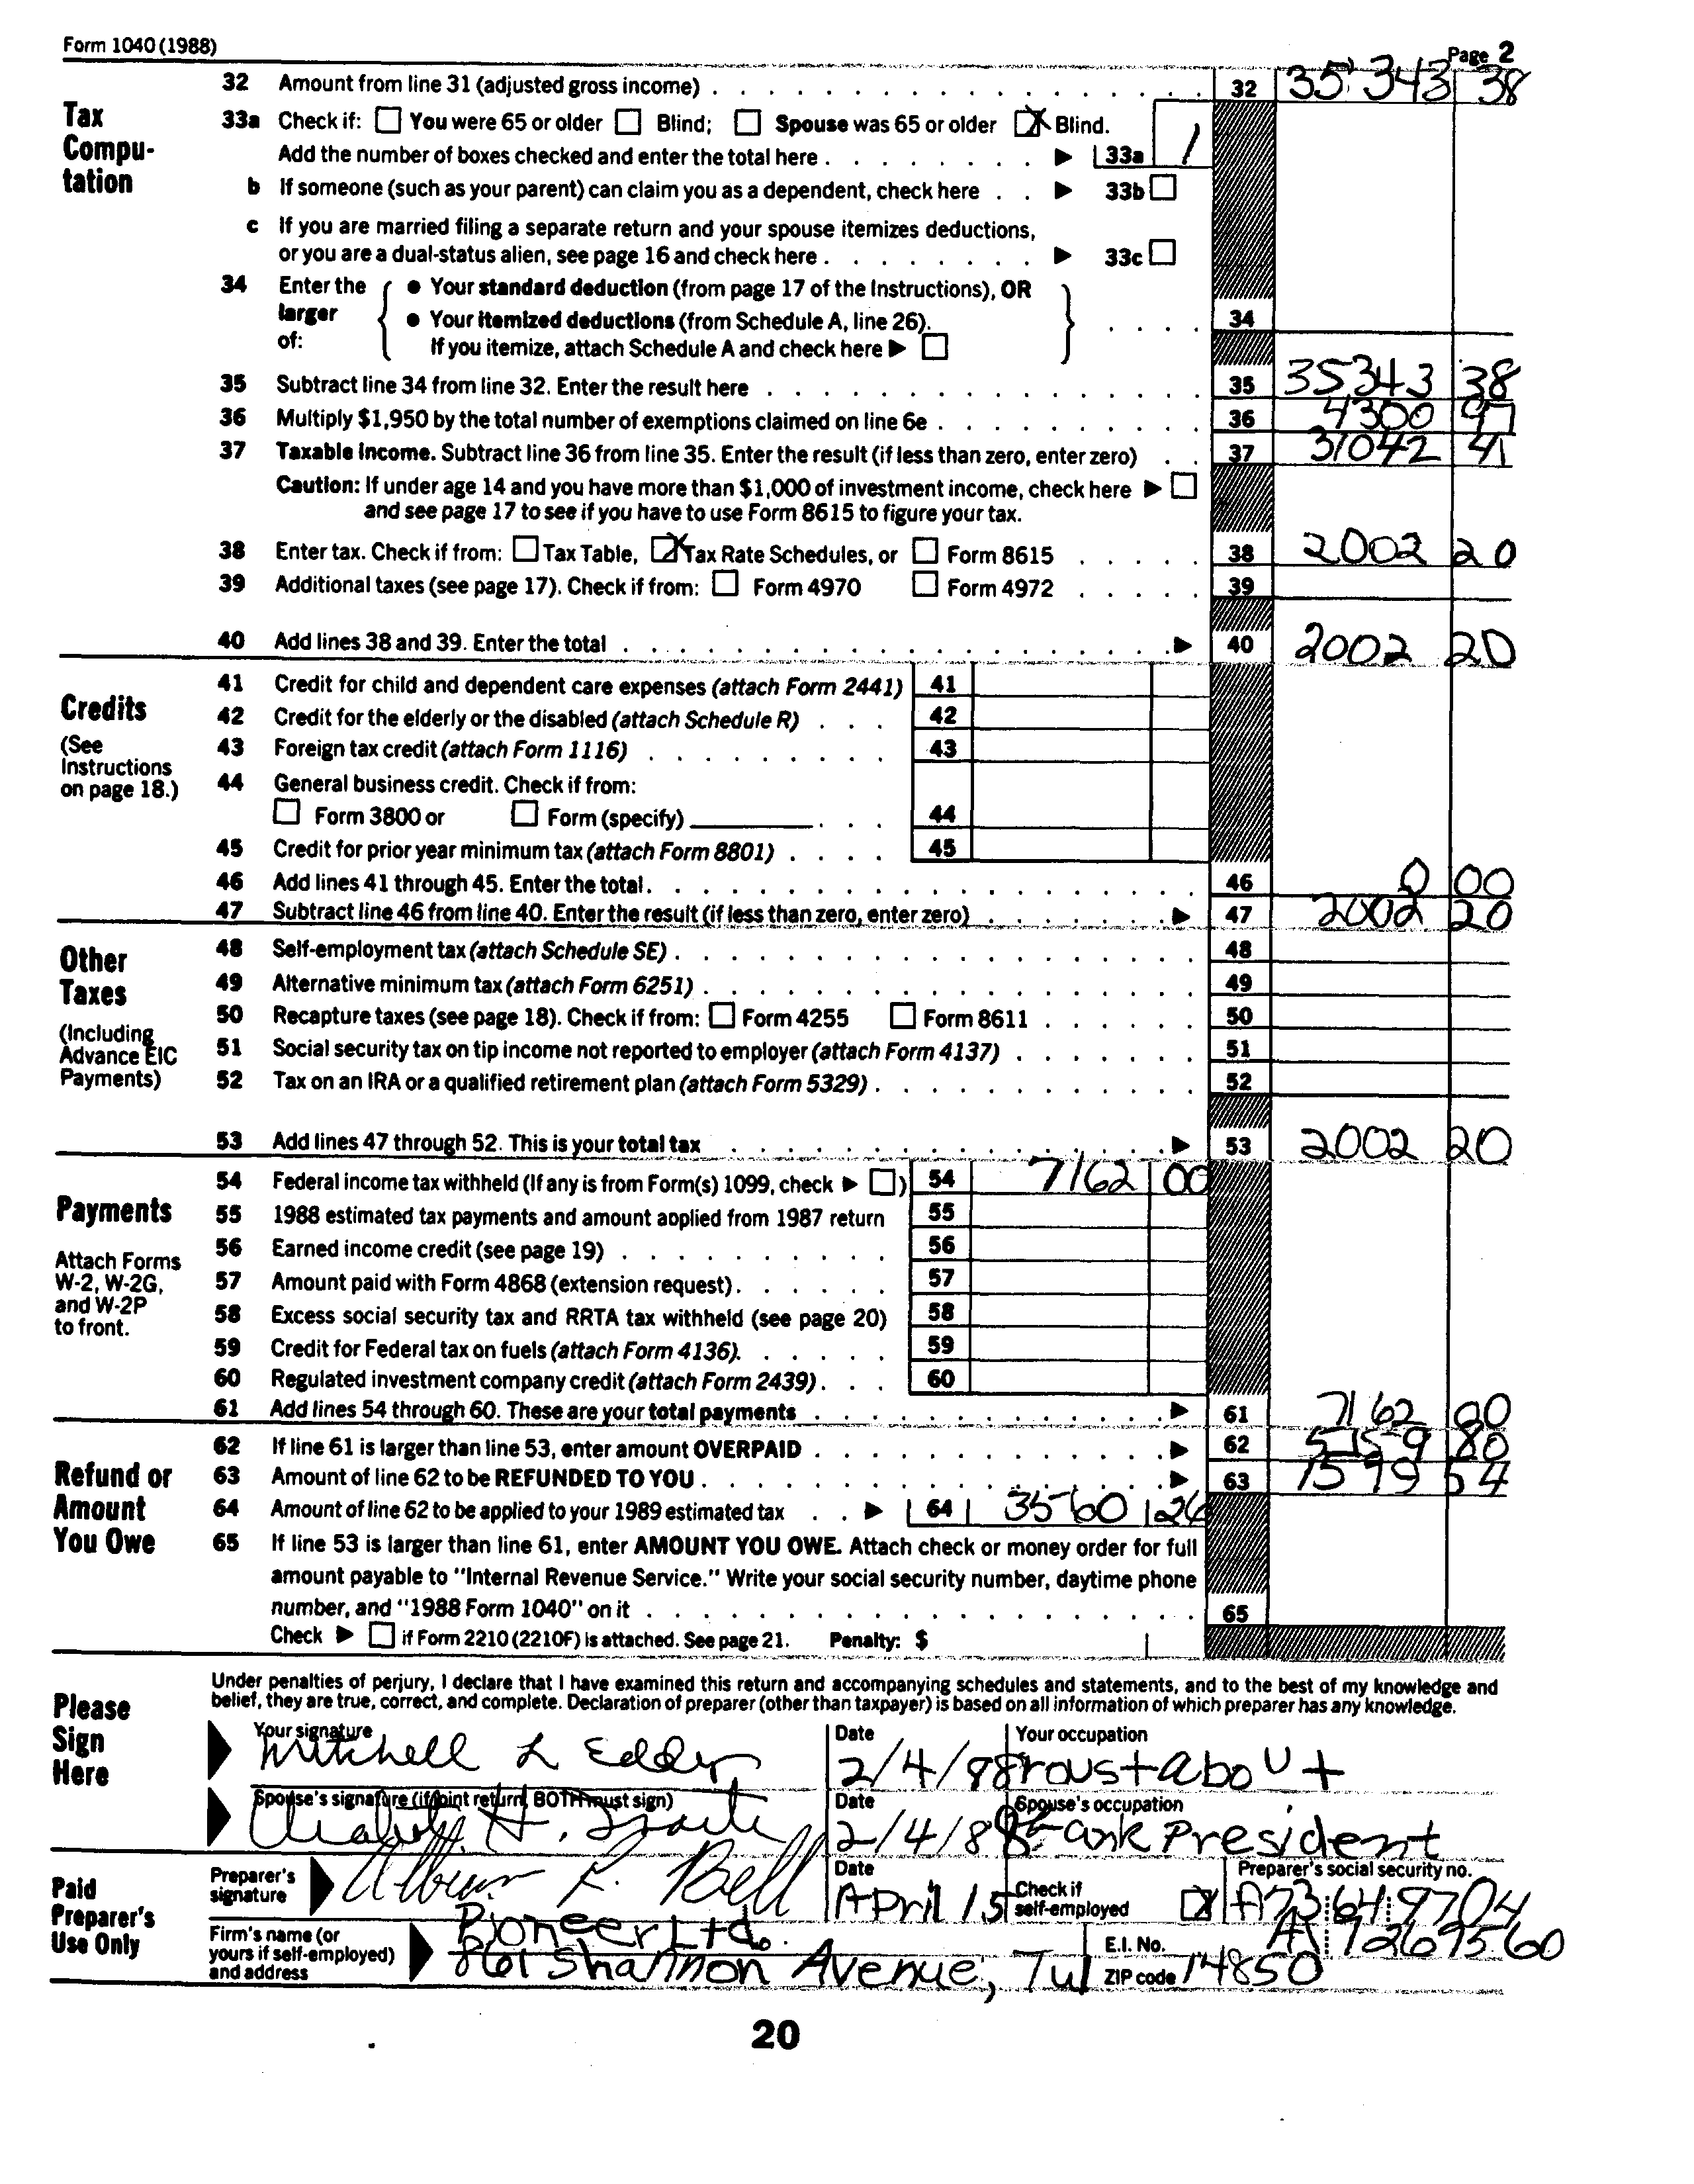 Form 1040 (1988) Page 2
Tax Compu- tation
32 Amount from line 31 (adjusted gross income) 32 35 343 38
33a Check if: You were 65 or older Blind; Spouse was 65 or older X Blind.
Add the number of boxes checked and enter the total here ▶ 33a 1
b If someone (such as your parent) can claim you as a dependent, check here ▶ 33b
c If you are married filing a separate return and your spouse itemizes deductions,
or you are a dual-status alien, see page 16 and check here ▶ 33c
34 Enter the larger of:
● Your standard deduction (from page 17 of the Instructions), OR
● Your itemized deductions (from Schedule A, line 26).
If you itemize, attach Schedule A and check here ▶ 34
35 Subtract line 34 from line 32. Enter the result here 35 35343 38
36 Multiply $1,950 by the total number of exemptions claimed on line 6e 36 4300 97
37 Taxable income. Subtract line 36 from line 35. Enter the result (if less than zero, enter zero) 37 31042 41
Caution: If under age 14 and you have more than $1,000 of investment income, check here ▶
and see page 17 to see if you have to use Form 8615 to figure your tax.
38 Enter tax. Check if from: Tax Table, X Tax Rate Schedules, or Form 8615 38 2002 20
39 Additional taxes (see page 17). Check if from: Form 4970 Form 4972 39
40 Add lines 38 and 39. Enter the total ▶ 40 2002 20
Credits
(See Instructions on page 18.)
41 Credit for child and dependent care expenses (attach Form 2441) 41
42 Credit for the elderly or the disabled (attach Schedule R) 42
43 Foreign tax credit (attach Form 1116) 43
44 General business credit. Check if from:
Form 3800 or Form (specify) 44
45 Credit for prior year minimum tax (attach Form 8801) 45
46 Add lines 41 through 45. Enter the total. 46 0 00
47 Subtract line 46 from line 40. Enter the result (if less than zero, enter zero) ▶ 47 2002 20
Other Taxes
(Including Advance EIC Payments)
48 Self-employment tax (attach Schedule SE) 48
49 Alternative minimum tax (attach Form 6251) 49
50 Recapture taxes (see page 18). Check if from: Form 4255 Form 8611 50
51 Social security tax on tip income not reported to employer (attach Form 4137) 51
52 Tax on an IRA or a qualified retirement plan (attach Form 5329) 52
53 Add lines 47 through 52. This is your total tax ▶ 53 2002 20
Payments
Attach Forms W-2, W-2G, and W-2P to front.
54 Federal income tax withheld (If any is from Form(s) 1099, check ▶ ) 54 7162 00
55 1988 estimated tax payments and amount applied from 1987 return 55
56 Earned income credit (see page 19) 56
57 Amount paid with Form 4868 (extension request) 57
58 Excess social security tax and RRTA tax withheld (see page 20) 58
59 Credit for Federal tax on fuels (attach Form 4136). 59
60 Regulated investment company credit (attach Form 2439) 60
61 Add lines 54 through 60. These are your total payments ▶ 61 7162 00
Refund or Amount You Owe
62 If line 61 is larger than line 53, enter amount OVERPAID ▶ 62 5159 80
63 Amount of line 62 to be REFUNDED TO YOU ▶ 63 1599 54
64 Amount of line 62 to be applied to your 1989 estimated tax ▶ 64 3560 26
65 If line 53 is larger than line 61, enter AMOUNT YOU OWE. Attach check or money order for full
amount payable to "Internal Revenue Service." Write your social security number, daytime phone
number, and "1988 Form 1040" on it 65
Check ▶ if Form 2210 (2210F) is attached. See page 21. Penalty: $
Please Sign Here
Under penalties of perjury, I declare that I have examined this return and accompanying schedules and statements, and to the best of my knowledge and
belief, they are true, correct, and complete. Declaration of preparer (other than taxpayer) is based on all information of which preparer has any knowledge.
Your signature Date Your occupation
Mitchell L Eddy 2/4/88 roustabout
Spouse's signature (if joint return, BOTH must sign) Date Spouse's occupation
H. 2/4/88 Bank President
Paid Preparer's Use Only
Preparer's signature Date Check if self-employed X Preparer's social security no.
R. Bell April 15 A73 64 9704
Firm's name (or yours if self-employed) and address
Pioneer Ltd. E.I. No. A1 9269560
861 Shannon Avenue, Tul ZIP code 14850
20